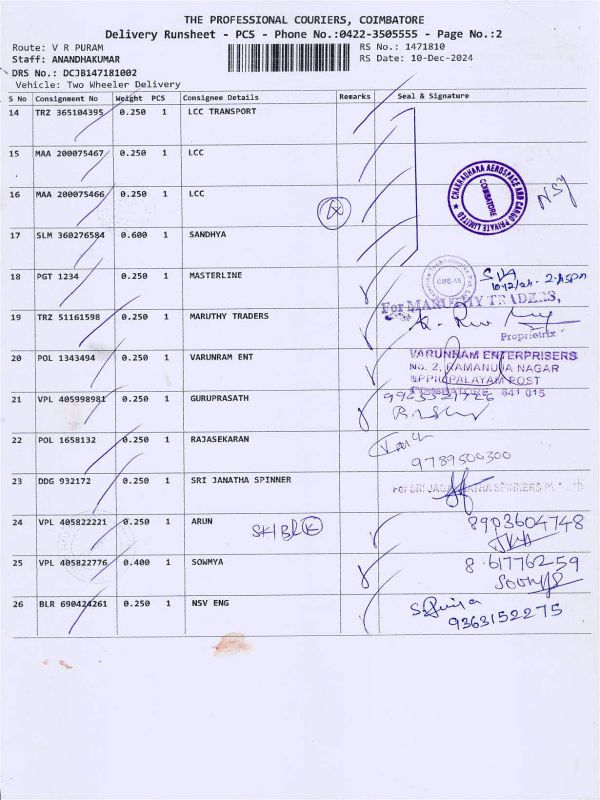 THE PROFESSIONAL COURIERS, COIMBATORE
Delivery Runsheet - PCS - Phone No.:0422-3505555 - Page No.:2
Route: V R PURAM RS No.: 1471810
Staff: ANANDHAKUMAR RS Date: 10-Dec-2024
DRS No.: DCJB147181002
Vehicle: Two Wheeler Delivery
S No Consignment No Weight PCS Consignee Details Remarks Seal & Signature
14 TRZ 365104395 0.250 1 LCC TRANSPORT
15 MAA 200075467 0.250 1 LCC
16 MAA 200075466 0.250 1 LCC
CHAKRADHARA AEROSPACE AND CARGO PRIVATE LIMITED
COIMBATORE
17 SLM 360276584 0.600 1 SANDHYA
18 PGT 1234 0.250 1 MASTERLINE
CBE-15
10/12/24 - 2:15pm
For MARUTHY TRADERS,
19 TRZ 51161598 0.250 1 MARUTHY TRADERS
Proprietrix
20 POL 1343494 0.250 1 VARUNRAM ENT
VARUNRAM ENTERPRISERS
No. 2, RAMANUJA NAGAR
UPPILIPALAYAM POST
COIMBATORE 641 015
21 VPL 405998981 0.250 1 GURUPRASATH
22 POL 1658132 0.250 1 RAJASEKARAN
9789500300
23 DDG 932172 0.250 1 SRI JANATHA SPINNER
For SRI JAGANNATHA SPINNERS PVT LTD
24 VPL 405822221 0.250 1 ARUN
8903604748
25 VPL 405822776 0.400 1 SOWMYA
8617776259
26 BLR 690424261 0.250 1 NSV ENG
9363152275